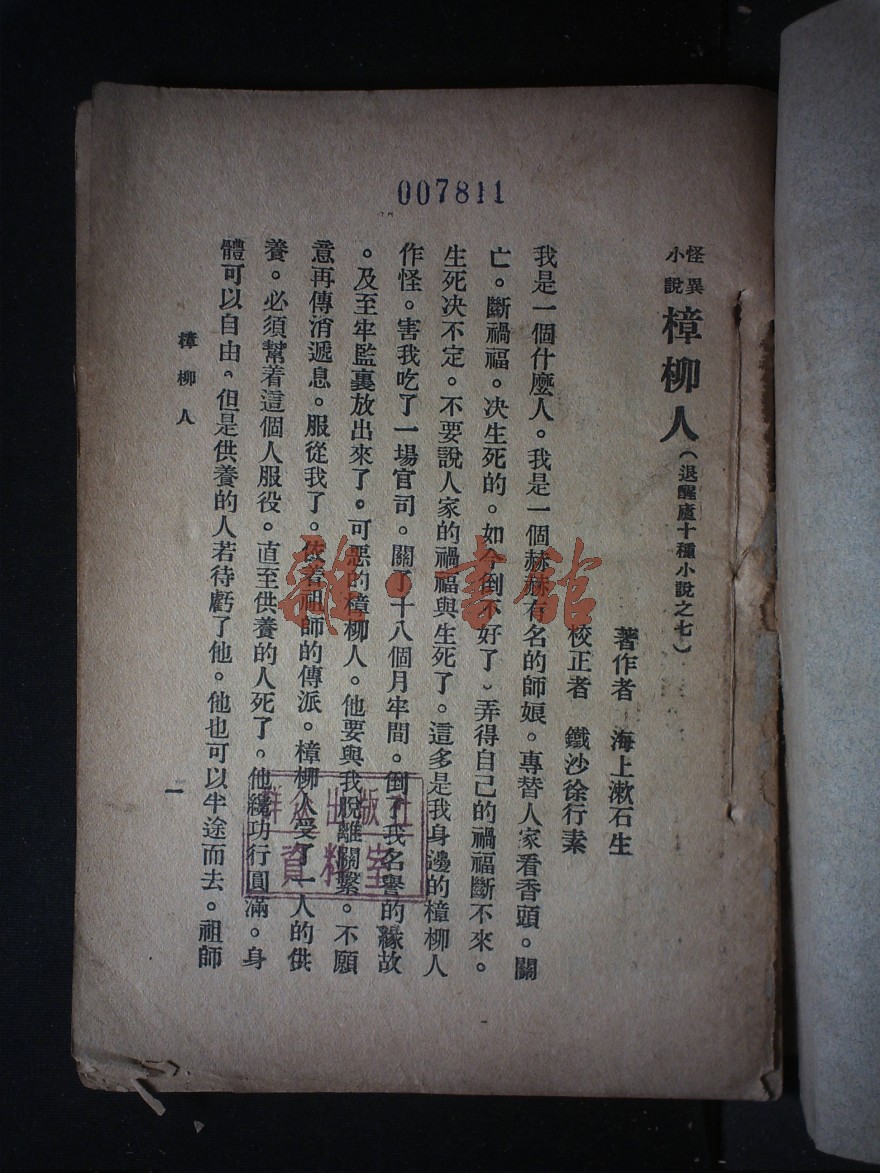 007811
怪異小說 樟柳人(退醒廬十種小說之七)
著作者 海上漱石生
校正者 鐵沙徐行素
我是一個什麼人。我是一個赫赫有名的師娘。專替人家看香頭。關
亡。斷禍福。决生死的。如今倒不好了、弄得自己的禍福斷不來。
生死决不定。不要說人家的禍福與生死了。這多是我身邊的樟柳人
作怪。害我吃了一場官司。關了十八個月牢間。倒了我名譽的緣故
。及至牢監裏放出來了。可惡的樟柳人。他要與我脫離關繫。不願
意再傳消遞息。服從我了。依着祖師的傳派。樟柳人受了一人的供
養。必須幫着這個人服役。直至供養的人死了。他纔功行圓滿。身
體可以自由。但是供養的人若待虧了他。他也可以半途而去。祖師
樟柳人
一
雜·書館
群众出版社
資料室